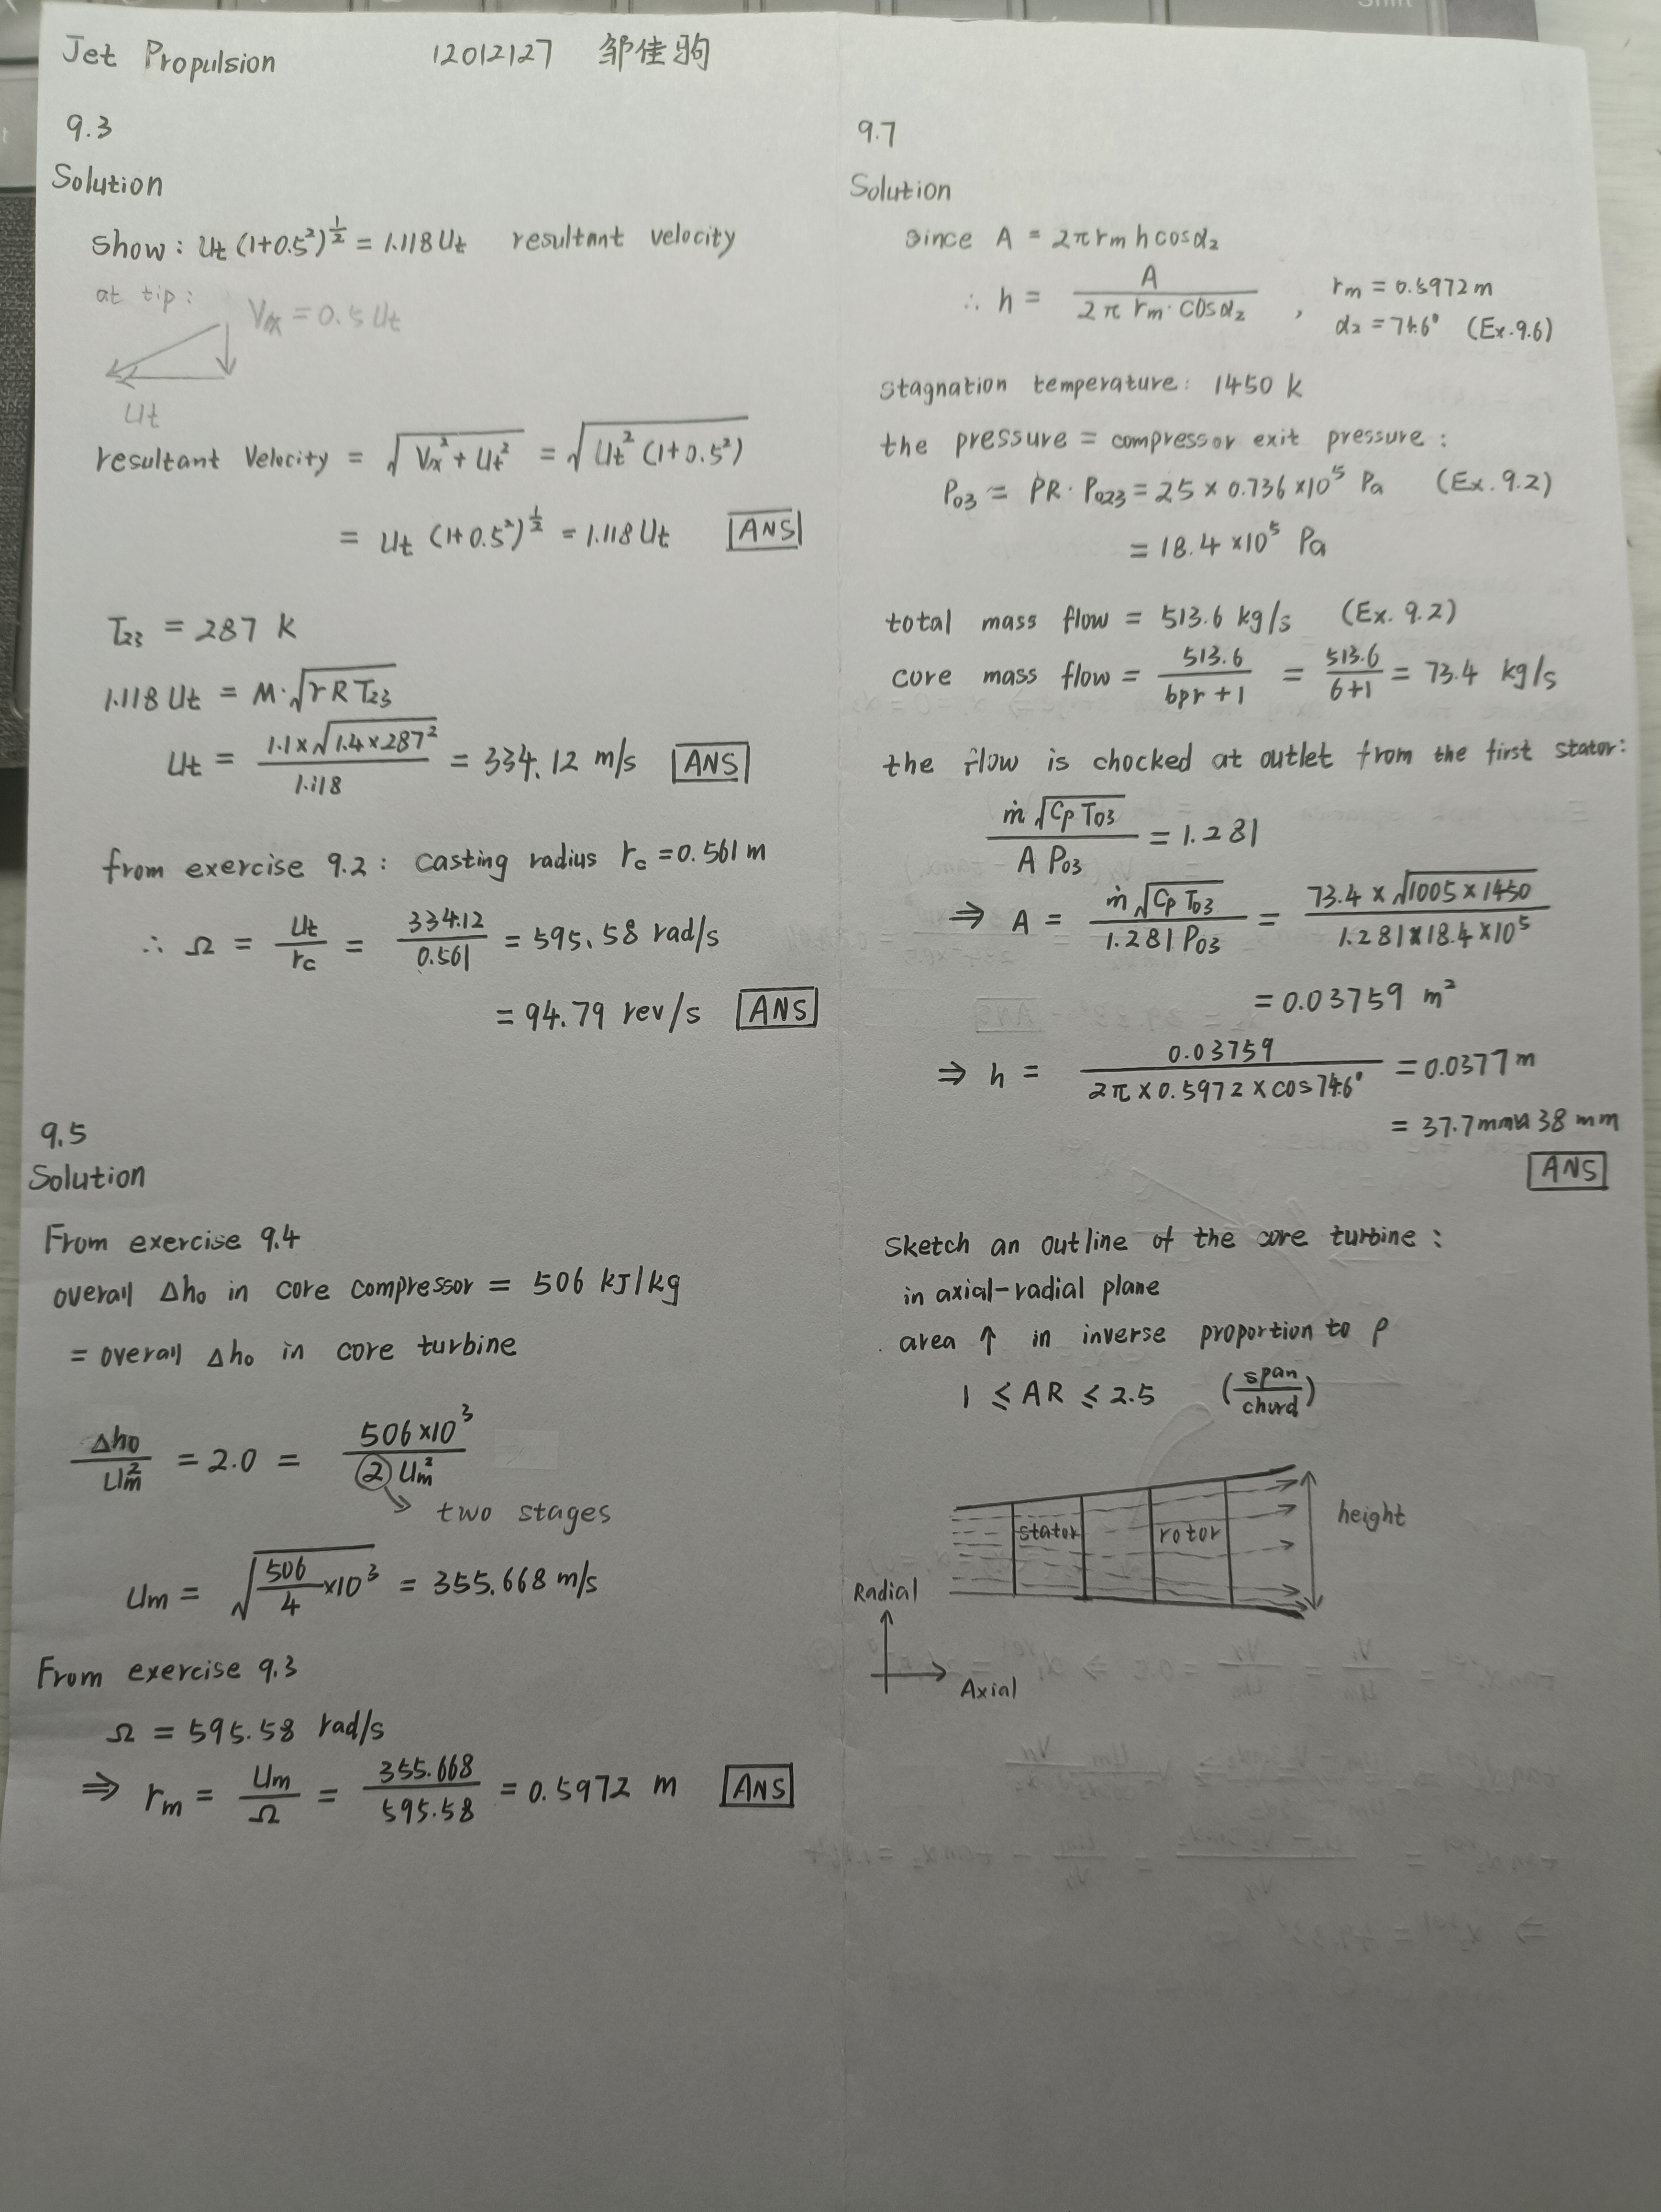 Jet Propulsion 12012127 邹佳驹
9.3
Solution
show: Ut (1+0.5²)^½ = 1.118 Ut resultant velocity
at tip:
Vx = 0.5 Ut
Ut
resultant Velocity = √(Vx² + Ut²) = √(Ut² (1+0.5²))
= Ut (1+0.5²)^½ = 1.118 Ut ANS
T23 = 287 K
1.118 Ut = M·√(γRT23)
Ut = (1.1×√(1.4×287²))/1.118 = 334.12 m/s ANS
from exercise 9.2: casting radius rc = 0.561 m
∴ Ω = Ut/rc = 334.12/0.561 = 595.58 rad/s
= 94.79 rev/s ANS
9.5
Solution
From exercise 9.4
overall Δh0 in core compressor = 506 kJ/kg
= overall Δh0 in core turbine
Δh0/Um² = 2.0 = 506×10³/(2 Um²)
→ two stages
Um = √(506/4 ×10³) = 355.668 m/s
From exercise 9.3
Ω = 595.58 rad/s
⇒ rm = Um/Ω = 355.668/595.58 = 0.5972 m ANS
9.7
Solution
since A = 2π rm h cosα2
∴ h = A/(2π rm·cosα2) , rm = 0.5972 m
α2 = 74.6° (Ex.9.6)
stagnation temperature: 1450 K
the pressure = compressor exit pressure:
P03 = PR·P023 = 25 × 0.736 ×10⁵ Pa (Ex.9.2)
= 18.4 ×10⁵ Pa
total mass flow = 513.6 kg/s (Ex.9.2)
core mass flow = 513.6/(bpr+1) = 513.6/(6+1) = 73.4 kg/s
the flow is chocked at outlet from the first stator:
ṁ√(Cp T03)/(A P03) = 1.281
⇒ A = ṁ√(Cp T03)/(1.281 P03) = (73.4 × √(1005×1450))/(1.281×18.4×10⁵)
= 0.03759 m²
⇒ h = 0.03759/(2π×0.5972×cos74.6°) = 0.0377 m
= 37.7mm≈38 mm
ANS
Sketch an outline of the core turbine:
in axial-radial plane
area ↑ in inverse proportion to ρ
1 ≤ AR ≤ 2.5 (span/chord)
stator rotor height
Radial
Axial